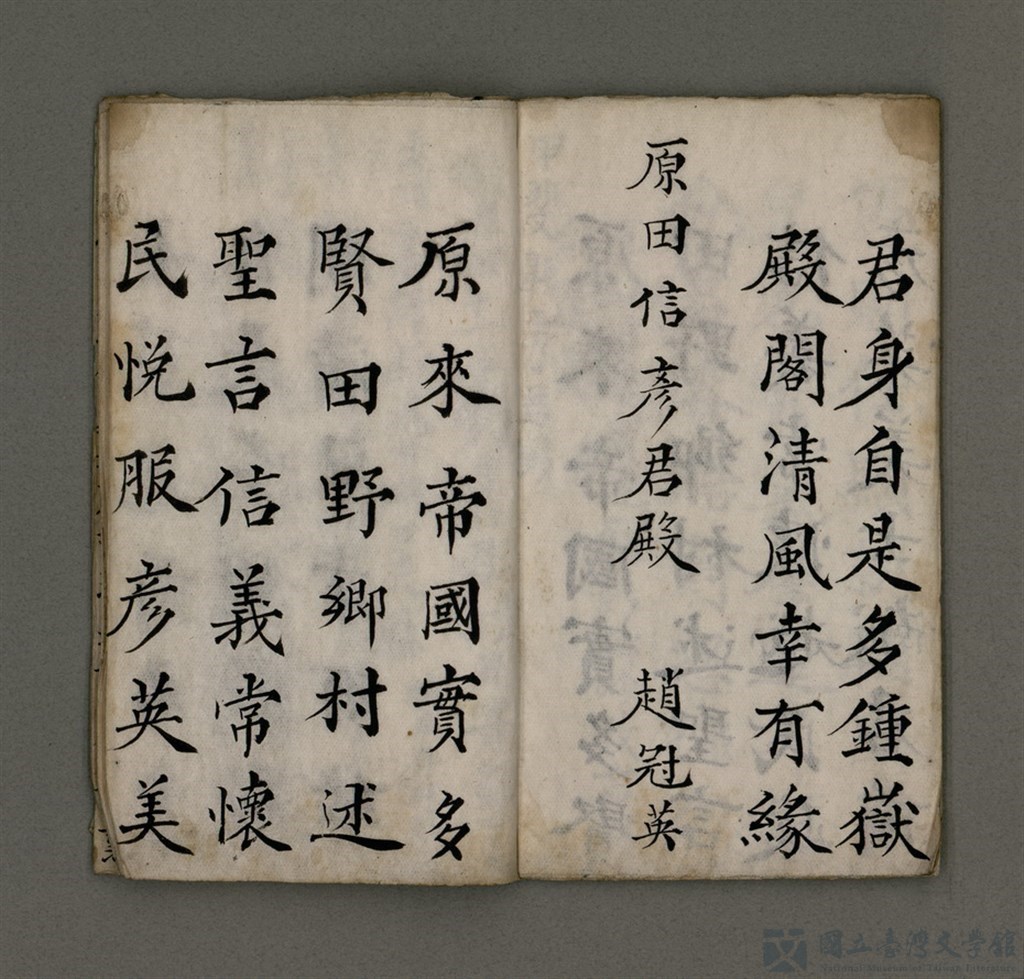 君身自是多鍾嶽
殿閣清風幸有緣
原田信彥君殿 趙冠英
原來帝國實多
賢田野鄉村述
聖言信義常懷
民悅服彥英美
國立臺灣文學館